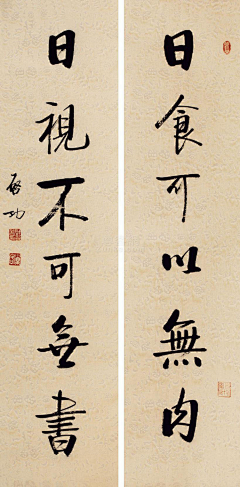 日食可以無肉
日視不可無書
啟功